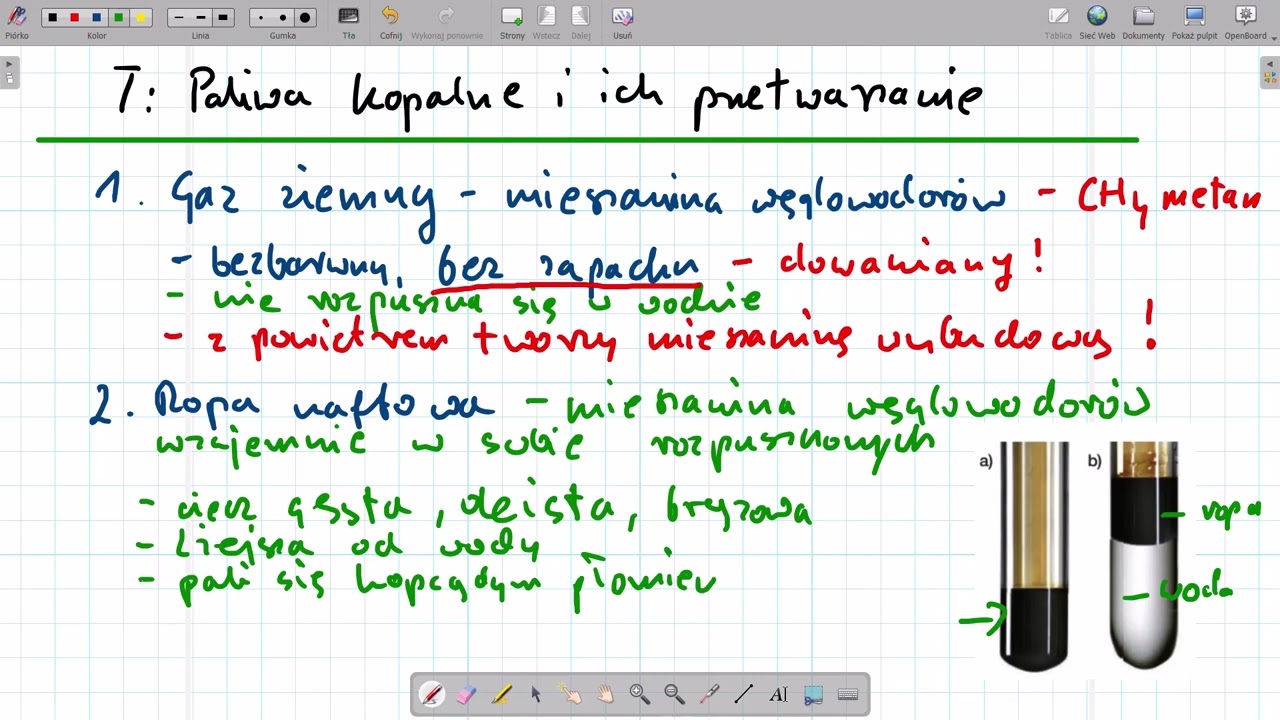 Piórko Kolor Linia Gumka Tła Cofnij Wykonaj ponownie Strony Wstecz Dalej Usuń Tablica Sieć Web Dokumenty Pokaż pulpit OpenBoard
T: Paliwa kopalne i ich przetwarzanie
1. Gaz ziemny - mieszanina węglowodorów - CH4 metan
- bezbarwny, bez zapachu - nawaniany!
- nie rozpuszcza się w wodzie
- z powietrzem tworzy mieszaninę wybuchową!
2. Ropa naftowa - mieszanina węglowodorów
wzajemnie w sobie rozpuszczonych
a) b)
- ciecz gęsta, oleista, brązowa
ropa
- lżejsza od wody
- pali się kopcącym płomieniem
woda
AI